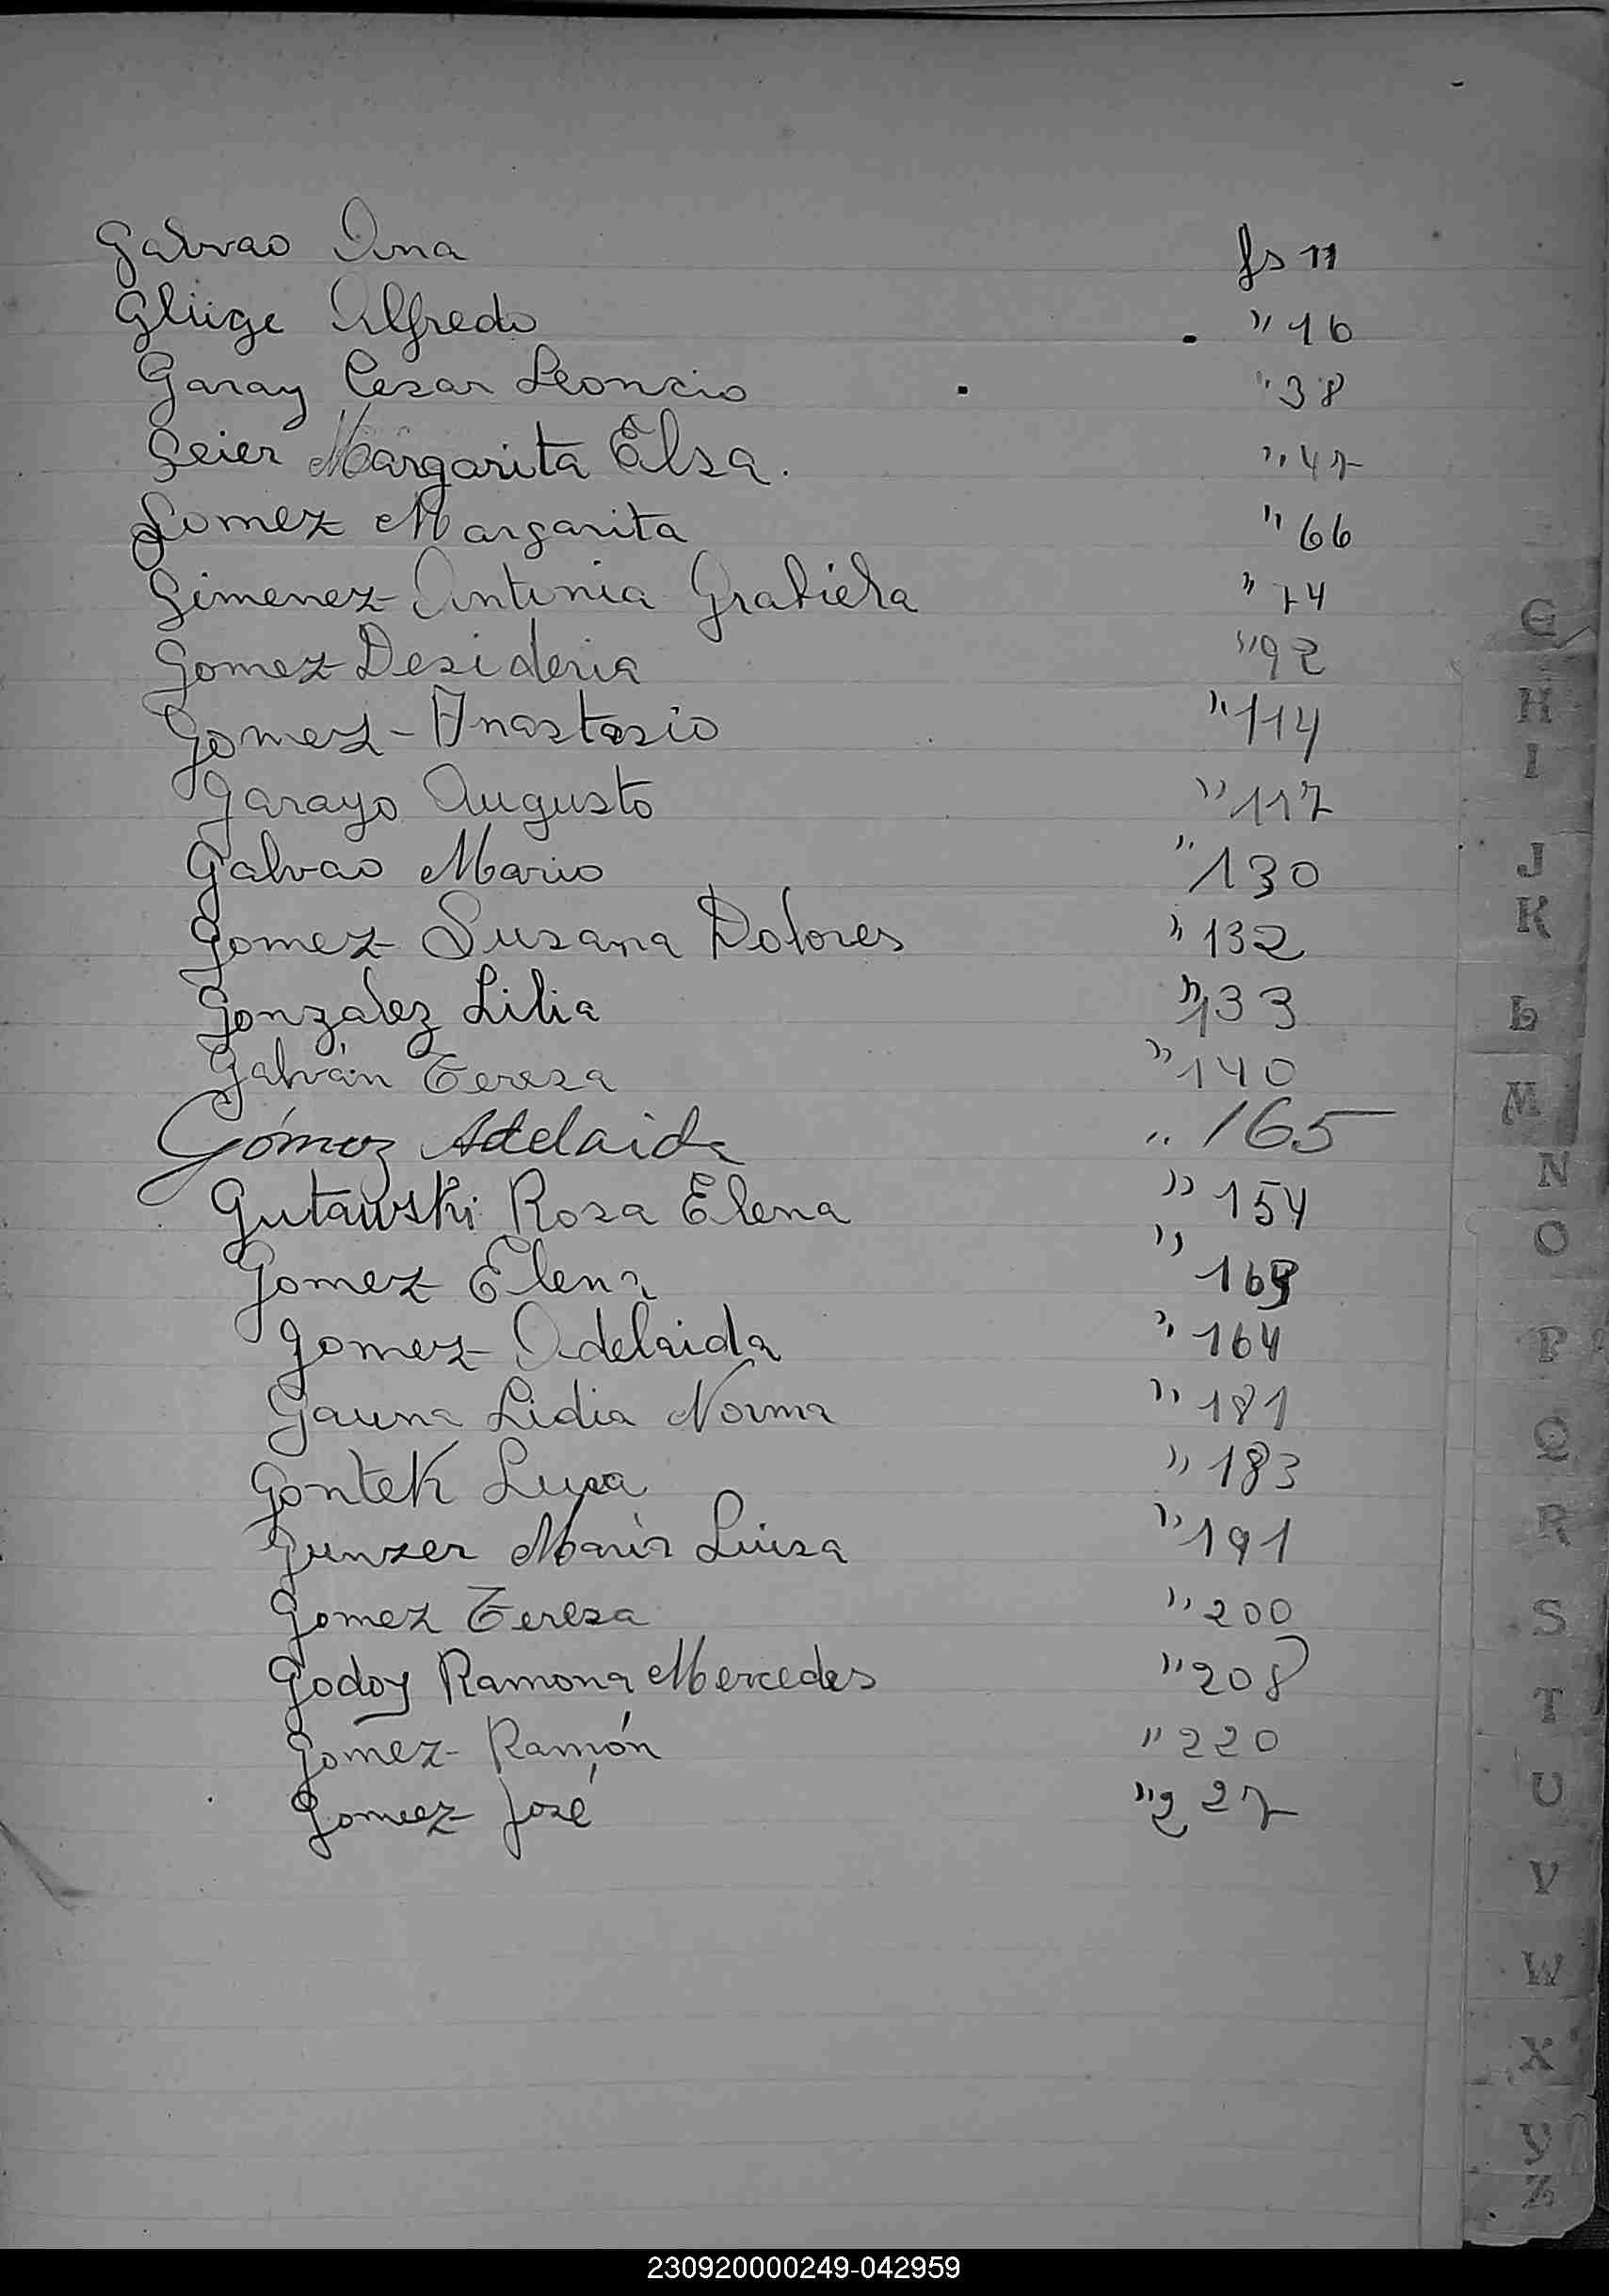 Galvao Ana fs 11
Glüge Alfredo " 16
Garay Cesar Leoncio " 38
Geier Margarita Elsa. " 47
Gomez Margarita " 66
Gimenez Antonia Grabiela " 74
Gomez Desideria " 92
Gomez - Anastasio " 114
Garayo Augusto " 117
Galvao Mario " 130
Gomez Susana Dolores " 132
Gonzalez Lilia " 133
Galván Teresa " 140
Gómez Adelaida " 165
Gutawski Rosa Elena " 154
Gomez Elena "
Gomez Adelaida " 164
Gauna Lidia Norma " 181
Gontek Luisa " 183
Gunzer María Luisa " 191
Gomez Teresa " 200
Godoy Ramona Mercedes " 208
Gomez - Ramón " 220
Gomez José " 227
G
H
I
J
K
L
M
N
O
P
Q
R
S
T
U
V
W
X
Y
Z
230920000249-042959